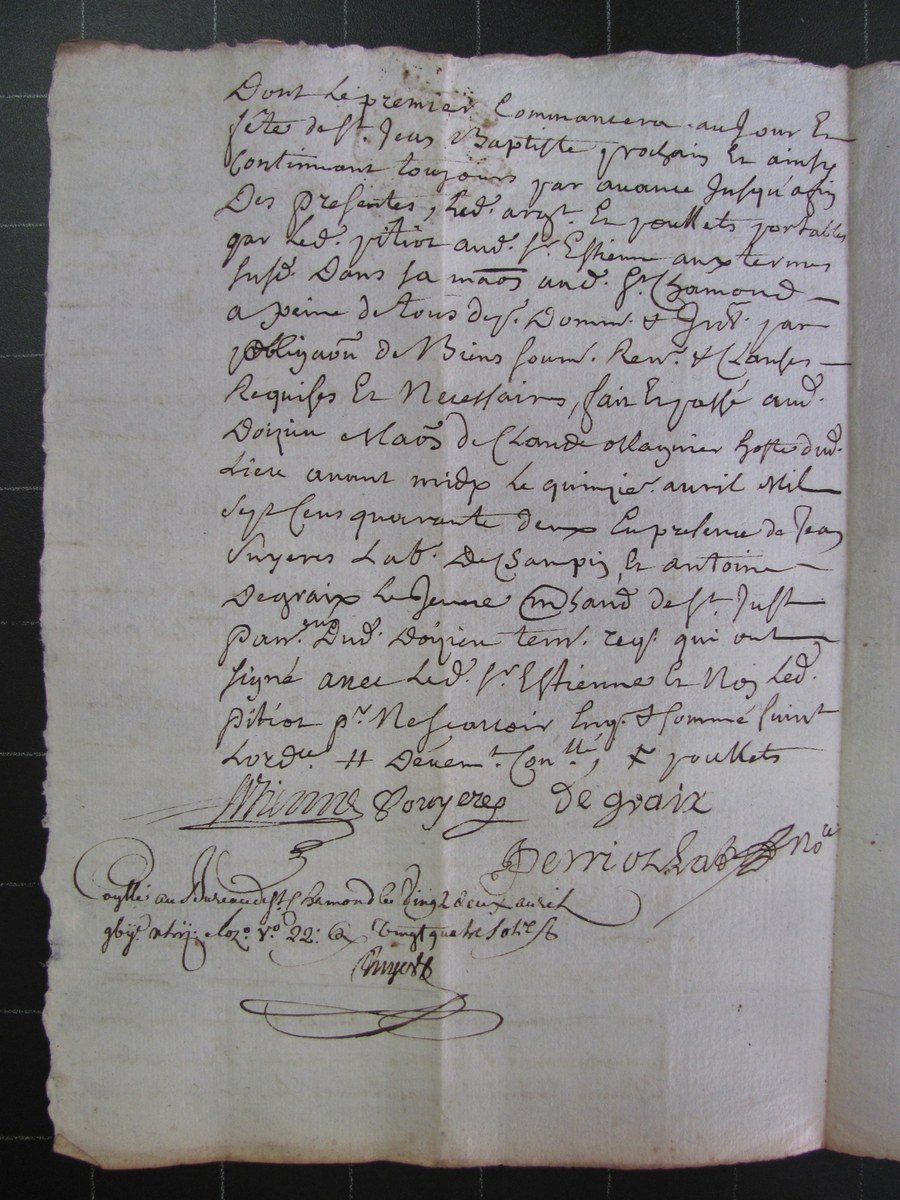 Dont Le premier Commancera au Jour Et
fête de st. Jean Baptiste prochain Et ainsy
Continuant toujours par auance Jusqu'a fin
Des presentes, Led. argt. Et poullets portables
par Led. pitiot aud. sr. Estienne aux termes
susd. Dans sa maōn aud. St. Chamond
a peine de tous des. Domm. & Intr. par
obligaōn de Biens soum. Ren. & Clauses
Requises Et Necessaires, fait Et passé aud.
Doizieu Maōn de Claude Magnier hoste dud.
Lieu auant midy Le quinzie. auril Mil
Sept Cens quarante deux En presence de Jean
Lab. De Champin, Et antoine
Degraix Le Jeune mchand de st. Just
Dud. Doizieu tem. reqs. qui ont
signé auec Led. sr. Estienne Et Non Led.
pitiot pr. Ne scauoir Enq. & sommé suiut
Lordce. # Con.lle, x poullets
Estienne Degraix
No.re
au Bureau de st. Chamond le Vingt deux auril
Vo. 22. Vingt quatre sols